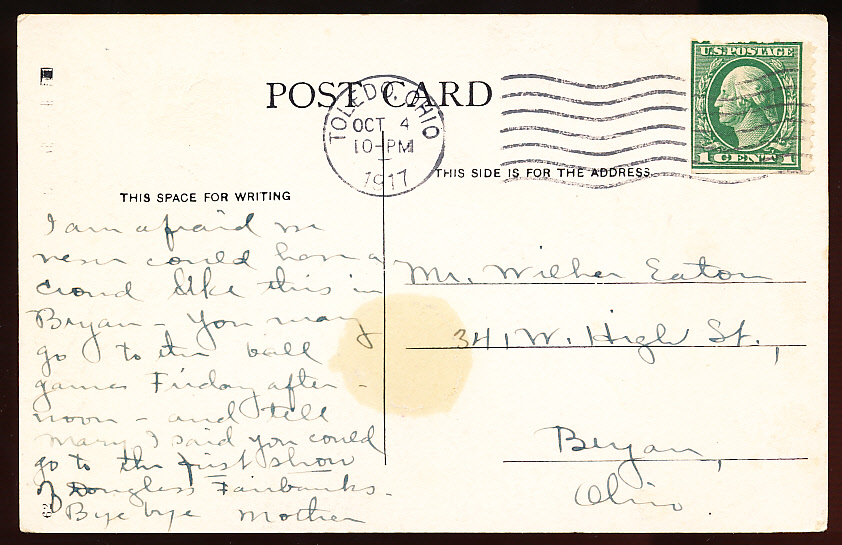 POST CARD
TOLEDO, OHIO
OCT 4
10-PM
1917
U.S. POSTAGE
1 CENT 1
THIS SPACE FOR WRITING
THIS SIDE IS FOR THE ADDRESS.
I am afraid we
never could have a
crowd like this in
Bryan - You may
go to the ball
games Friday after-
noon - and tell
Mary I said you could
go to the first show
of Douglass Fairbanks.
Bye bye Mother
Mr. Wilber Eaton
341 W. High St.,
Bryan,
Ohio